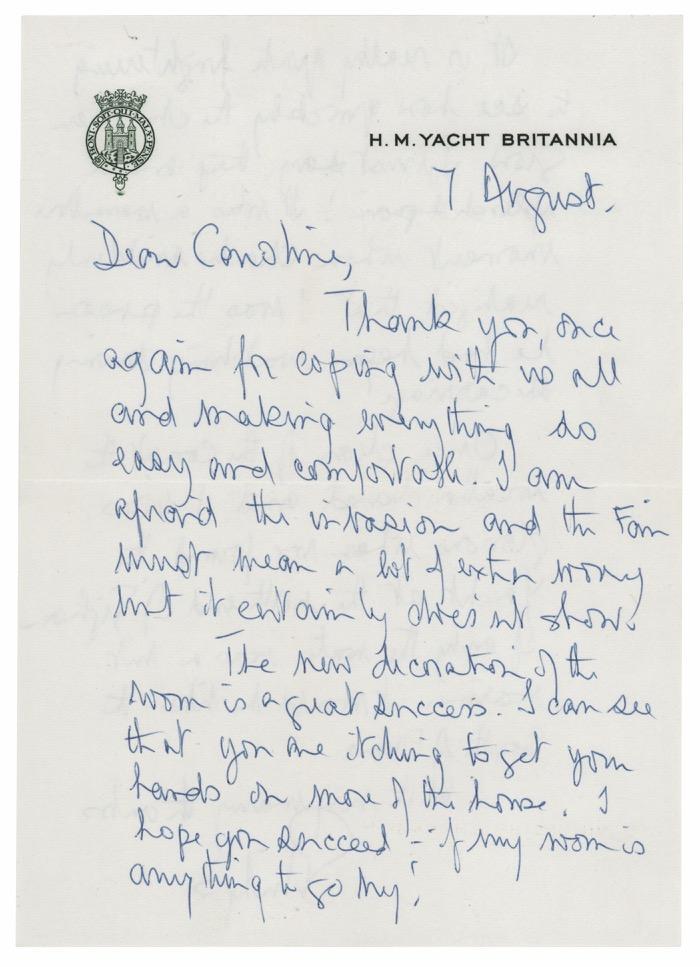 HONI · SOIT · QUI · MAL · Y · PENSE
H. M. YACHT BRITANNIA
7 August.
Dear Caroline,
Thank you, once
again for coping with us all
and making everything so
easy and comfortable. I am
afraid the invasion and the Fair
must mean a lot of extra worry
but it certainly does not show.
The new decoration of the
room is a great success. I can see
that you are itching to get your
hands on more of the house. I
hope you succeed - if my room is
anything to go by!